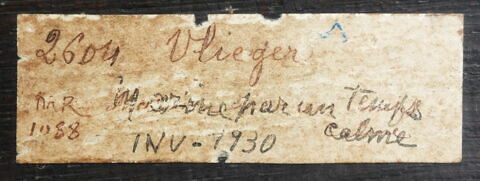 2604 Vlieger
MNR Marine par un Temps
1088 calme
INV - 1930